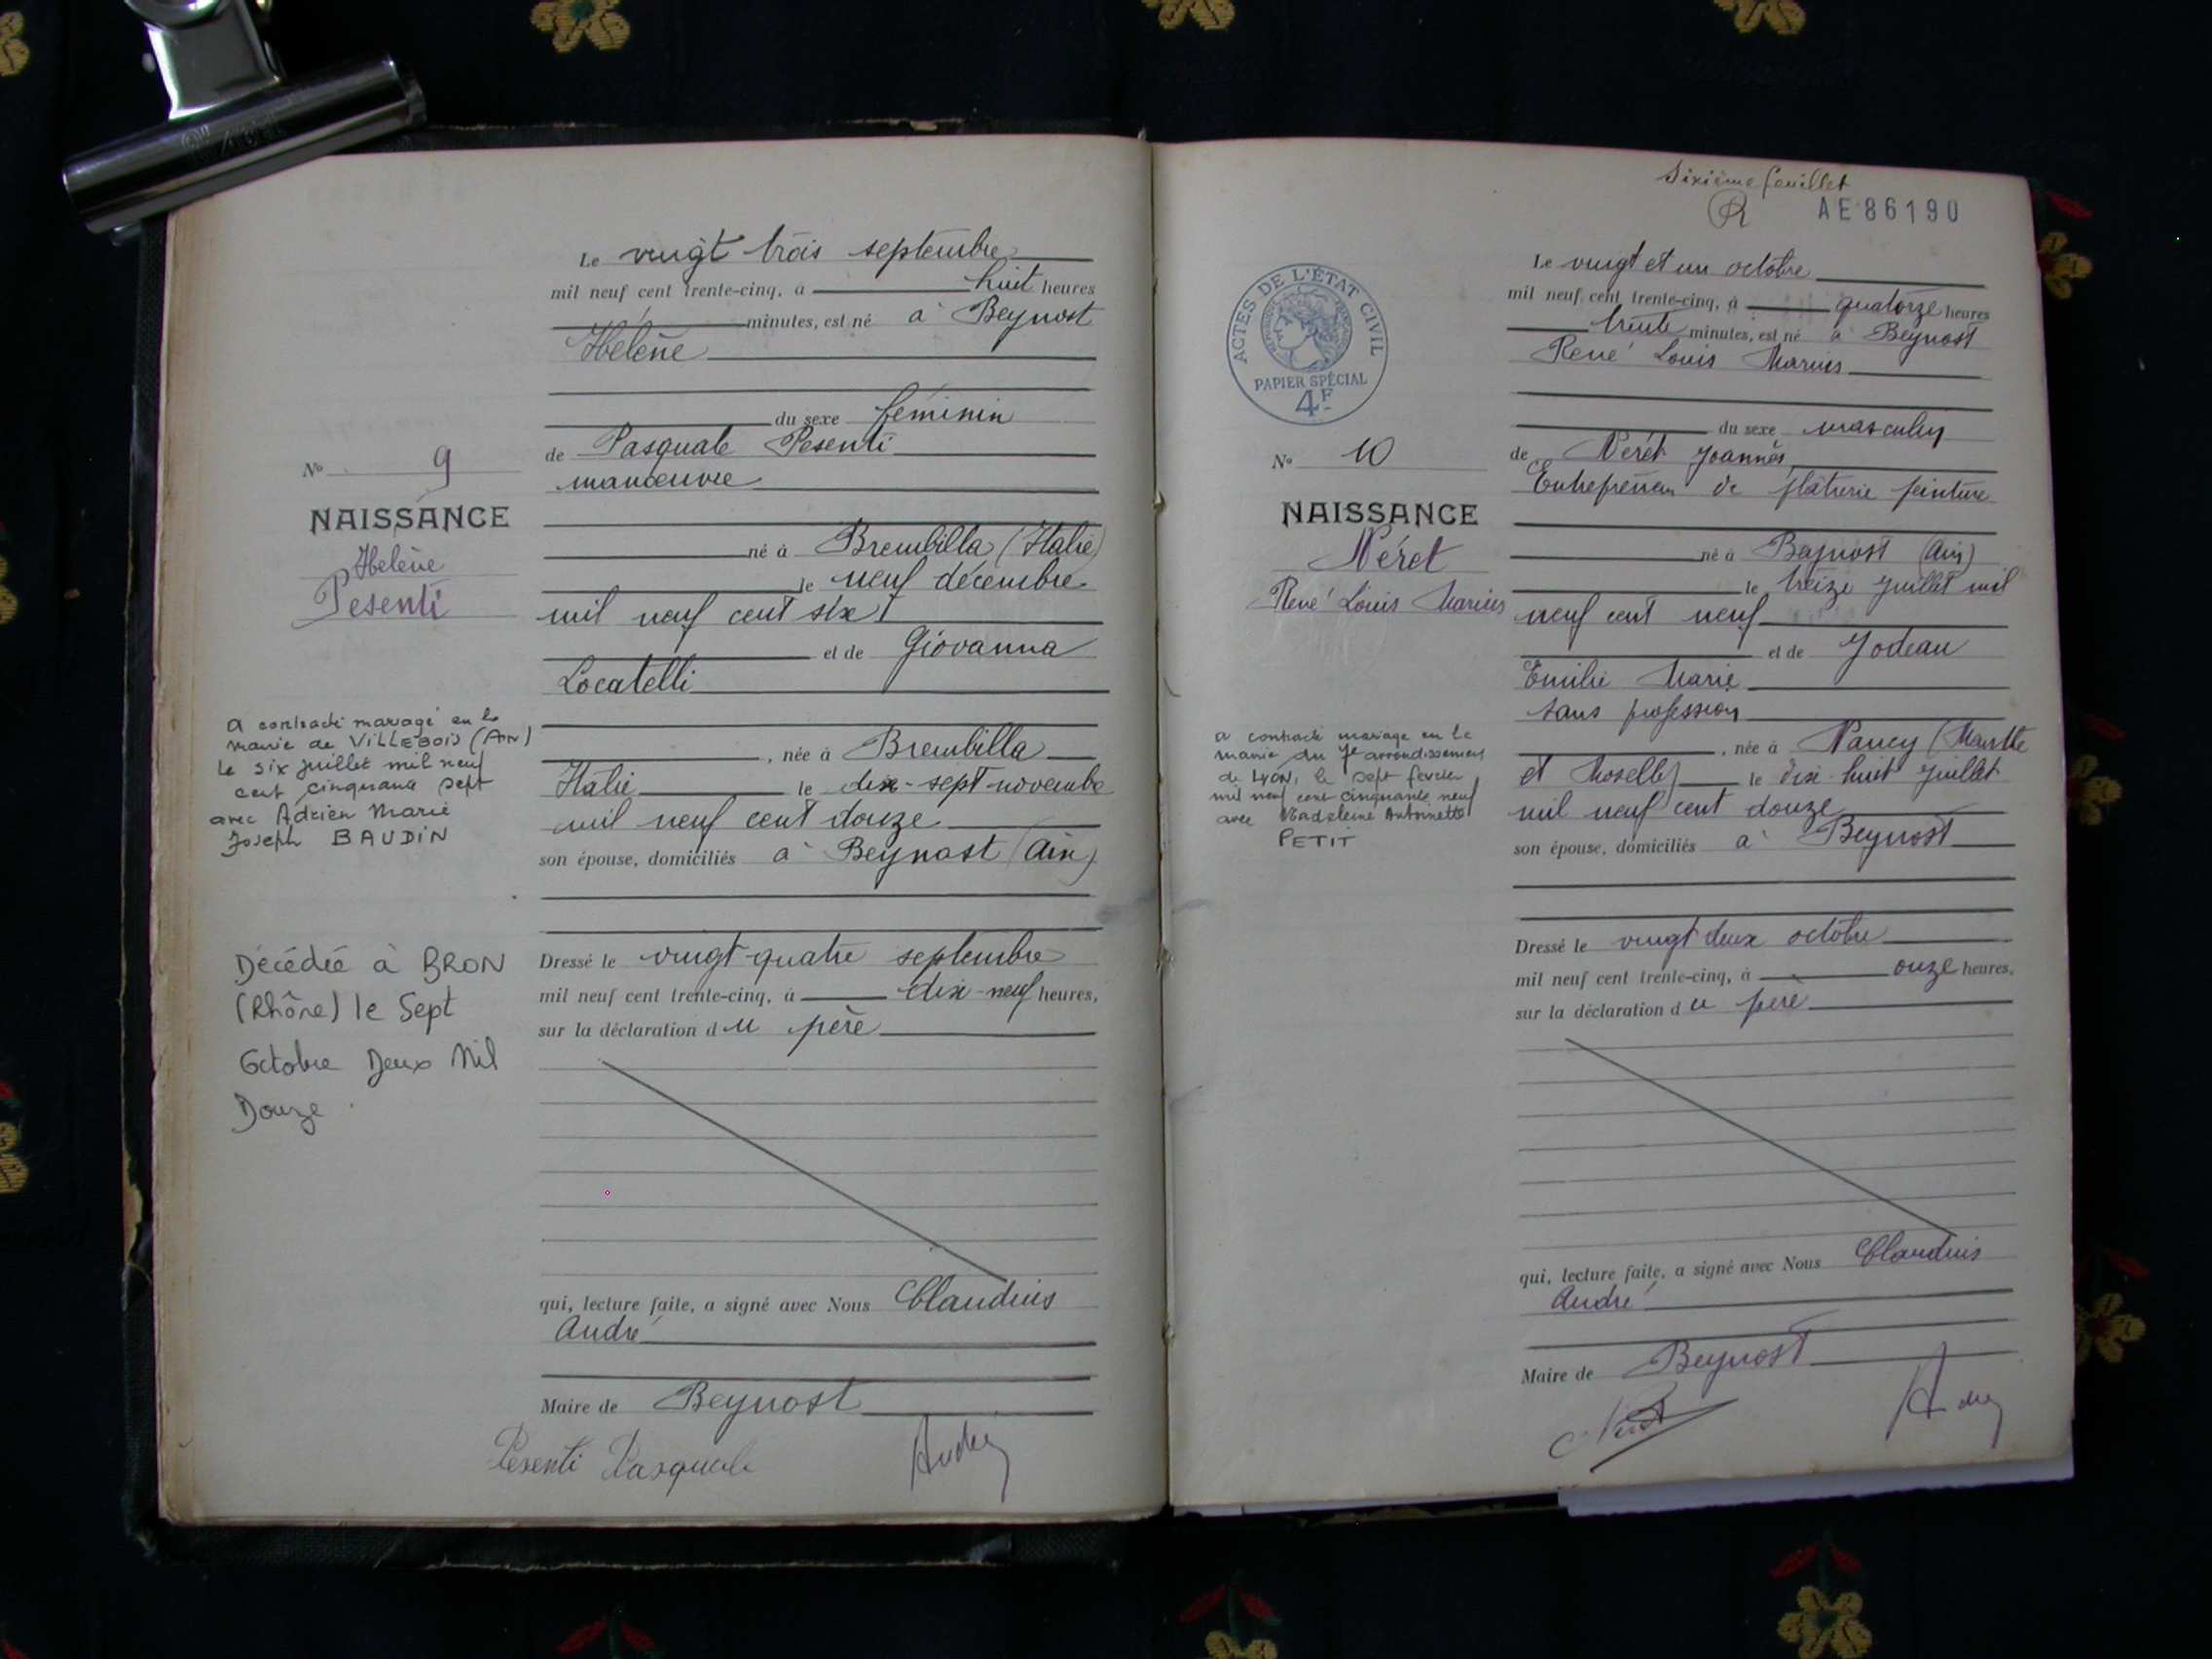 Le vingt trois septembre
mil neuf cent trente-cinq, à huit heures
minutes, est né à Beynost
Helène
du sexe féminin
de Pasquale Pesenti
manœuvre
né à Brembilla (Italie)
le neuf décembre
mil neuf cent six
et de Giovanna
Locatelli
, née à Brembilla
Italie le dix-sept novembre
mil neuf cent douze
son épouse, domiciliés à Beynost (Ain)
Dressé le vingt-quatre septembre
mil neuf cent trente-cinq, à dix-neuf heures,
sur la déclaration du père
qui, lecture faite, a signé avec Nous Claudius
André
Maire de Beynost
Pesenti Pasquale
André
No 9
NAISSANCE
Helène
Pesenti
a contracté mariage en la
mairie de VILLEBOIS (Ain)
le six juillet mil neuf
cent cinquante sept
avec Adrien Marie
Joseph BAUDIN
Décédée à BRON
(Rhône) le Sept
Octobre Deux Mil
Douze
Sixième feuillet
AE86190
Le vingt et un octobre
mil neuf cent trente-cinq, à quatorze heures
trente minutes, est né à Beynost
René Louis Marius
du sexe masculin
de Néret Joannès
Entrepreneur de plâtrerie peinture
né à Beynost (Ain)
le treize juillet mil
neuf cent neuf
et de Jodeau
Emilie Marie
sans profession
, née à Nancy (Meurthe
et Moselle) le dix-huit juillet
mil neuf cent douze
son épouse, domiciliés à Beynost
Dressé le vingt deux octobre
mil neuf cent trente-cinq, à onze heures,
sur la déclaration du père
qui, lecture faite, a signé avec Nous Claudius
André
Maire de Beynost
Néret
André
ACTES DE L'ÉTAT CIVIL
PAPIER SPÉCIAL
4F
No 10
NAISSANCE
Néret
René Louis Marius
a contracté mariage en la
mairie du 7e arrondissement
de LYON, le sept février
mil neuf cent cinquante neuf
avec Madeleine Antoinette
PETIT